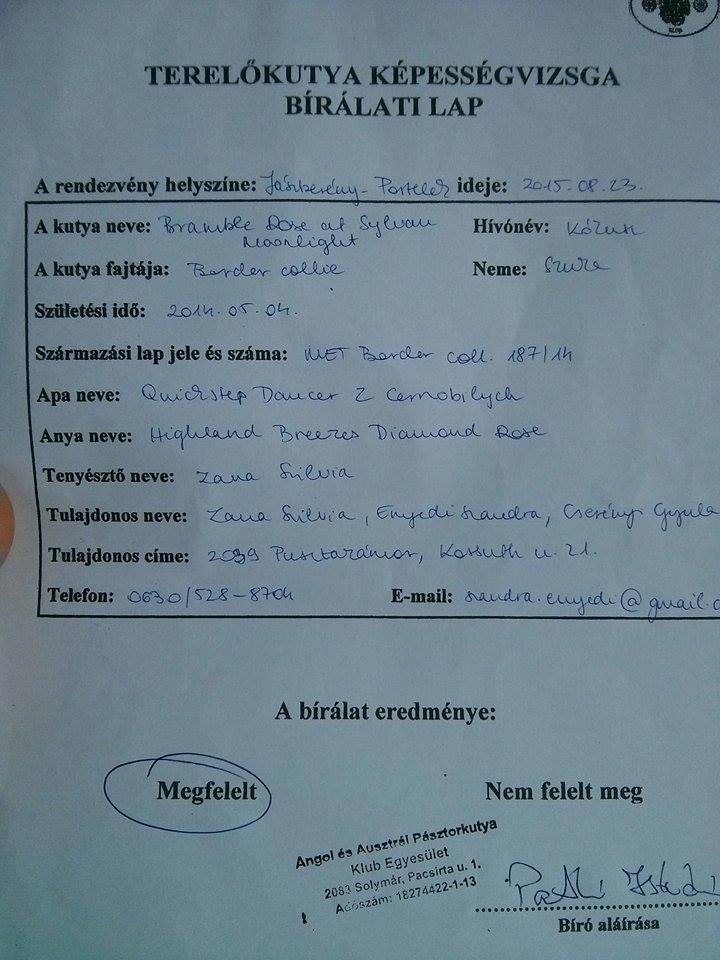 KLUB
TERELŐKUTYA KÉPESSÉGVIZSGA
BÍRÁLATI LAP
A rendezvény helyszíne: Jászberény - Portelek ideje: 2015.08.23.
A kutya neve: Bramble Rose at Sylvan Hívónév:
Moonlight
A kutya fajtája: Border collie Neme: Szuka
Születési idő: 2014.05.04.
Származási lap jele és száma: MET Border coll. 187/14
Apa neve: Quickstep Dancer Z Cernobilych
Anya neve: Highland Breezes Diamond Rose
Tenyésztő neve: Zana Szilvia
Tulajdonos neve: Zana Szilvia, Enyedi Szandra, Cserényi Gyula
Tulajdonos címe: 2039 Pusztazámor, Kossuth u. 21.
Telefon: 0630/528-8704 E-mail: szandra.enyedi@gmail.c
A bírálat eredménye:
Megfelelt Nem felelt meg
Angol és Ausztrál Pásztorkutya
Klub Egyesület
2083 Solymár, Pacsirta u. 1.
Adószám: 18274422-1-13
Bíró aláírása